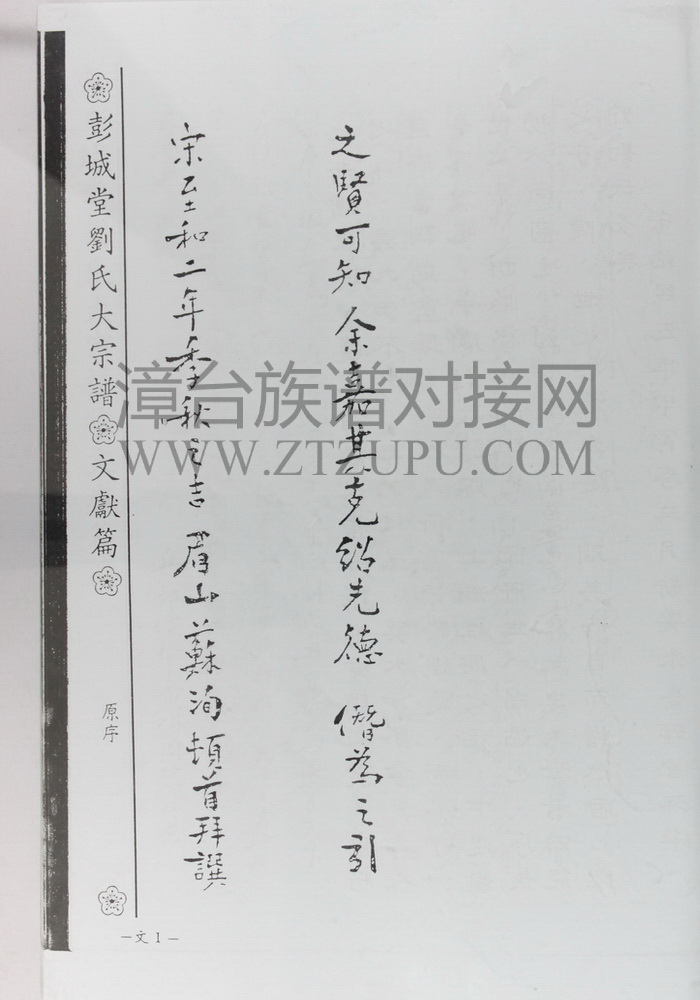 之賢可知余嘉其克紹先德僭為之引
宋至和二年季秋之吉眉山蘇洵頓首拜譔
彭城堂劉氏大宗譜 文獻篇
原序
—文1—
漳台族谱对接网
WWW.ZTZUPU.COM